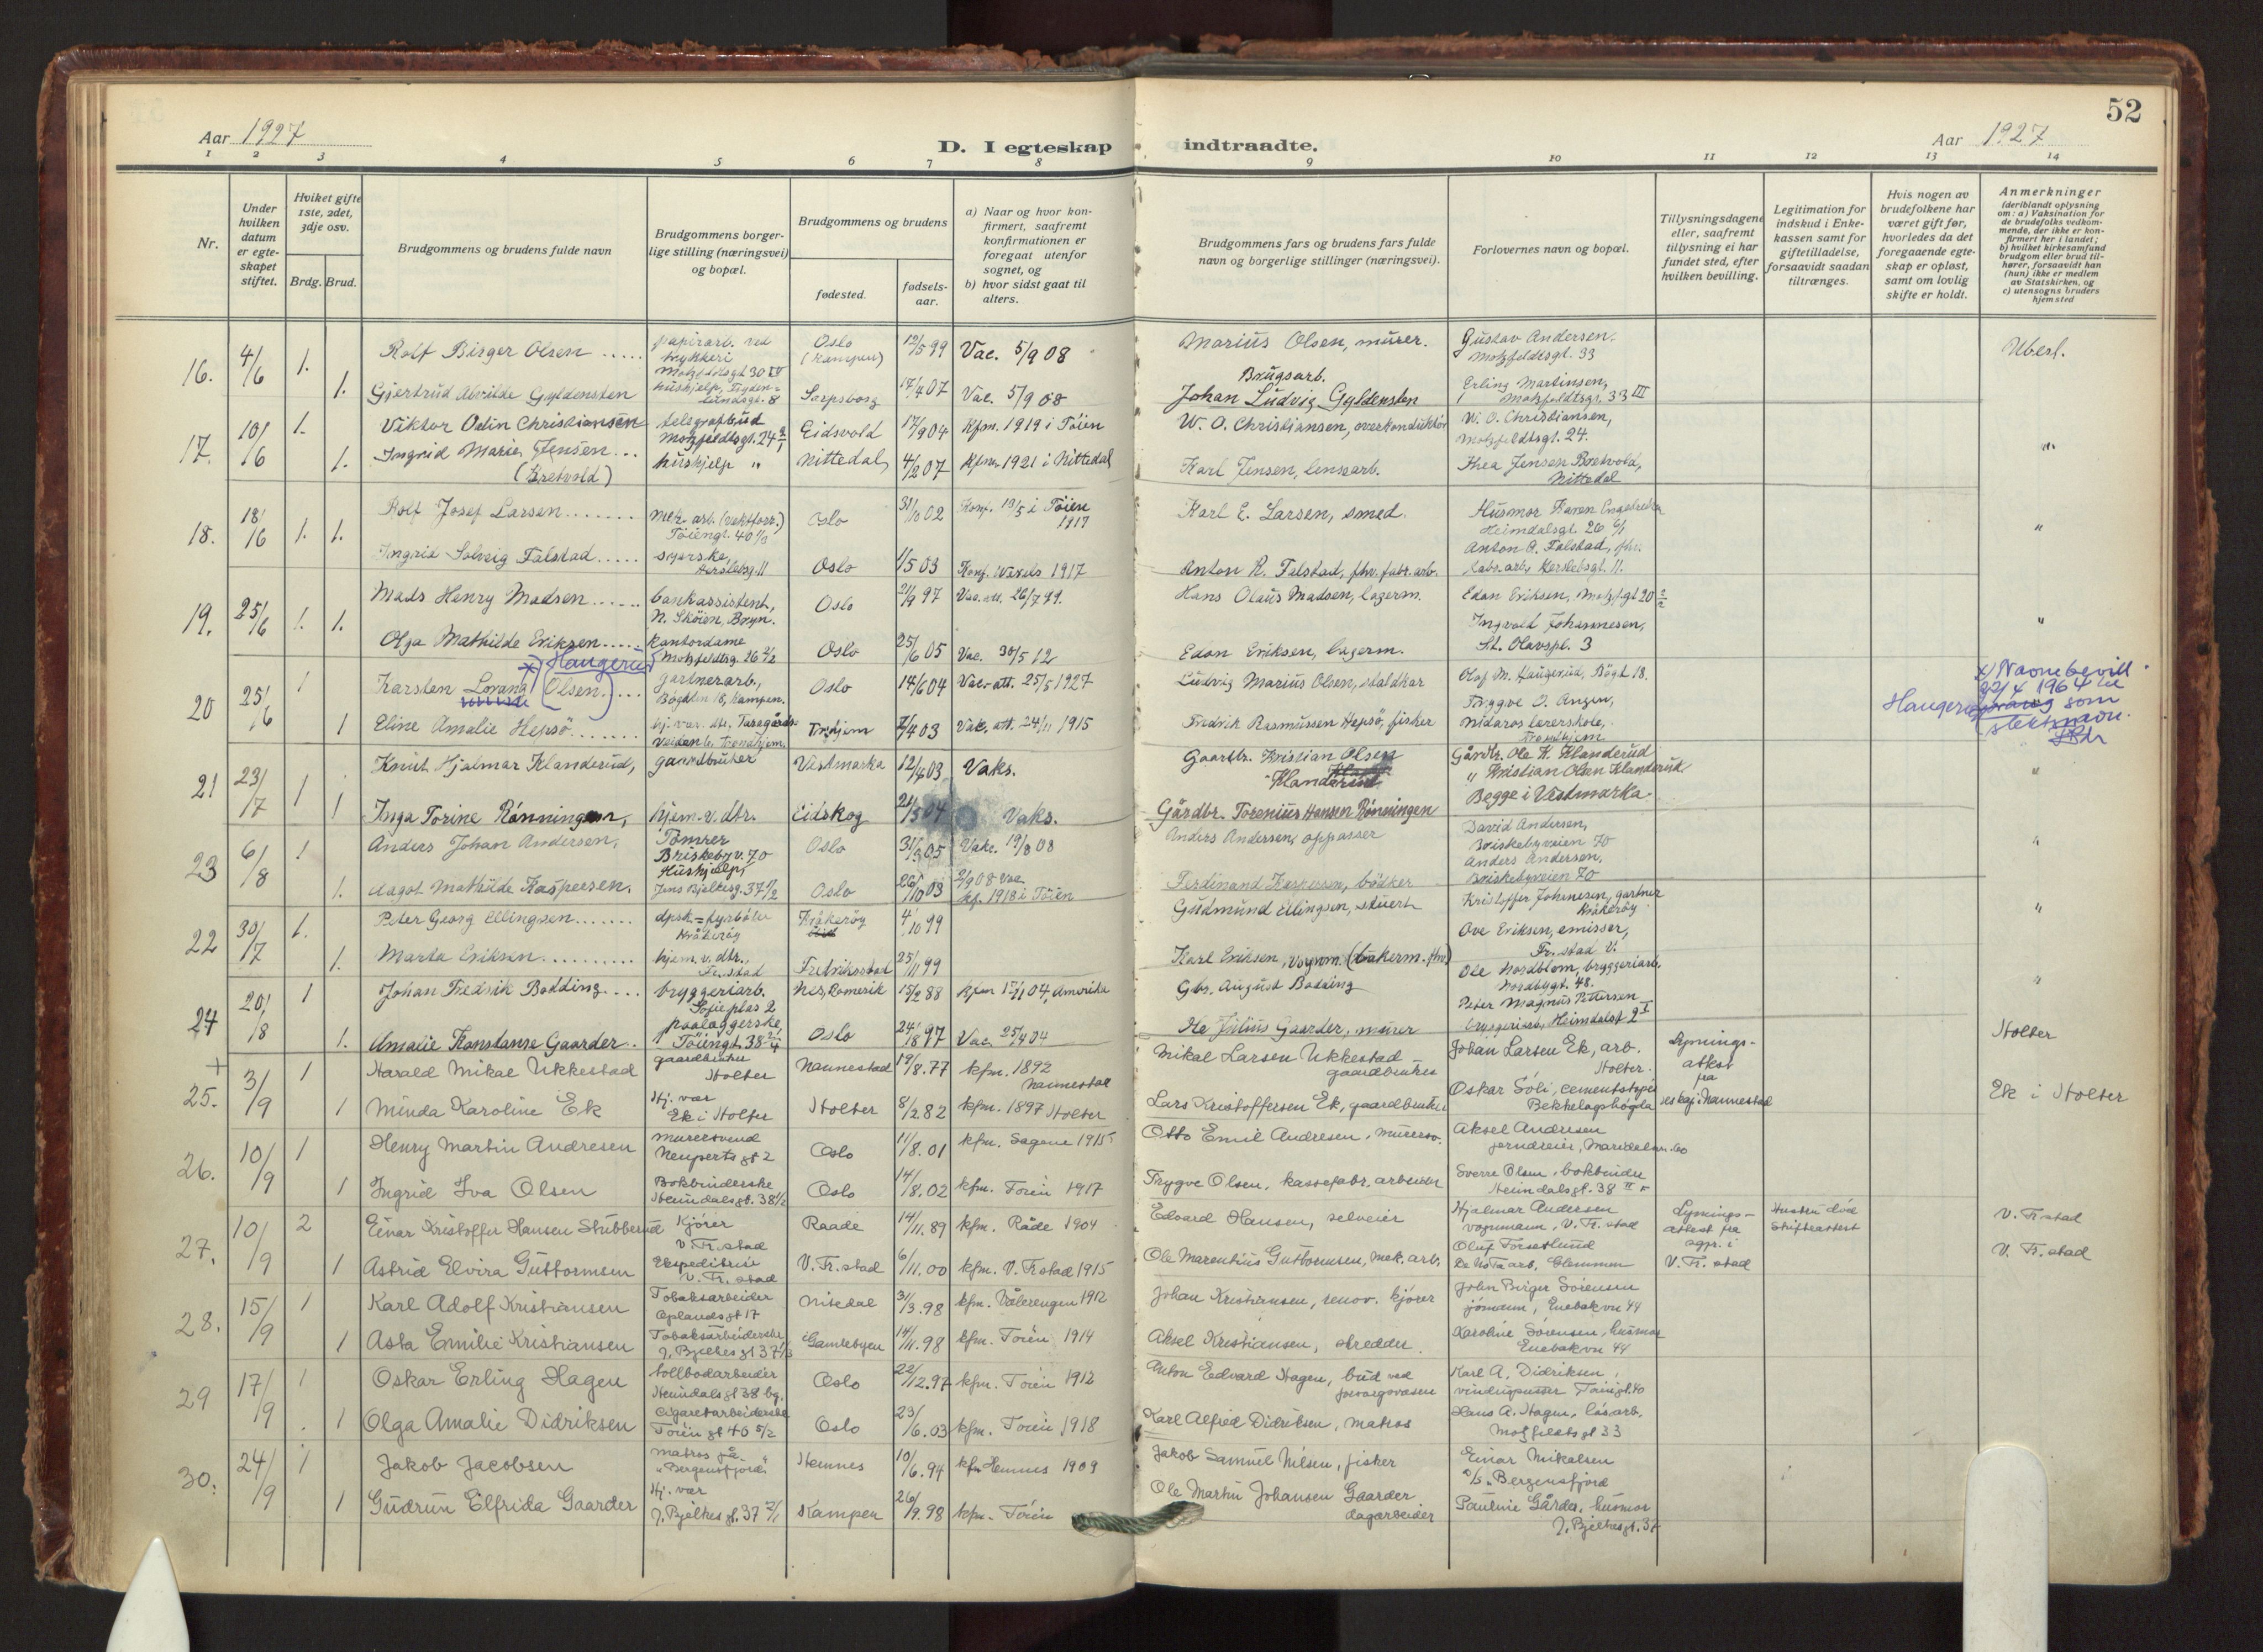 52
Aar 1927
D. I egteskap indtraadte.
Aar 1927
1 2 3 4 5 6 7 8 9 10 11 12 13 14
Nr.
Under hvilken datum er egteskapet stiftet.
Hviket gifte 1ste, 2det, 3dje osv.
Brdg. Brud.
Brudgommens og brudens fulde navn
Brudgommens borgerlige stilling (næringsvei) og bopæl.
Brudgommens og brudens
fødested.
fødselsaar.
a) Naar og hvor konfirmert, saafremt konfirmationen er foregaat utenfor sognet, og
b) hvor sidst gaat til alters.
Brudgommens fars og brudens fars fulde navn og borgerlige stillinger (næringsvei).
Forlovernes navn og bopæl.
Tillysningsdagene eller, saafremt tillysning ei har fundet sted, efter hvilken bevilling.
Legitimation for indskud i Enkekassen samt for giftetilladelse, forsaavidt saadan tiltrænges.
Hvis nogen av brudefolkene har været gift før, hvorledes da det foregaaende egteskap er opløst, samt om lovlig skifte er holdt.
Anmerkninger (deriblandt oplysning om: a) Vaksination for de brudefolks vedkommende, der ikke er konfirmert her i landet; b) hvilket kirkesamfund brudgom eller brud tilhører, forsaavidt han (hun) ikke er medlem av Statskirken, og c) utensogns bruders hjemsted
16. 4/6 1. Rolf Birger Olsen papirarb. ved trykkeri Motzfeldtsgt 30 IV Oslo (Kampen) 12/5 99 Vac. 5/9 08 Marius Olsen, murer. Gustav Andersen. Motzfeldtsgt. 33 Uberl.
1. Gjertrud Alvilde Gyldensten hushjelp, Sarpsborg 17/4 07 Vac. 5/9 08 Brugsarb. Johan Ludvig Gyldensten Erling Martinsen, Motzfeldtsgt. 33 III
17. 10/6 1. Viktor Odin Christiansen telegrafbud Motzfeldtsgt. 24 Eidsvold 17/9 04 Kfm. 1919 i Töien W. O. Christiansen, overkonduktör W. O. Christiansen, Motzfeldtsgt. 24. "
1. Ingrid Marie Jensen (Bretvold) hushjelp " Nittedal 4/2 07 Kfm. 1921 i Nittedal Karl Jensen, lensearb. Thea Jensen Bretvold, Nittedal
18. 18/6 1. 1. Rolf Josef Larsen mek. arb. Töiengt. 40 Oslo 31/10 02 Konf. i Töien 1917 Karl E. Larsen, smed. Husmor Karen Heimdalsgt. 26 "
Ingrid Solveig Falstad syerske, Herslebsg. 11 Oslo 1/5 03 Konf. Wexels 1917 Anton R. Falstad, fhv. fabr. arb. Anton R. Falstad, fhv. fabr. arb, Herslebsgt. 11.
19. 25/6 1. 1. Mads Henry Madsen bankassistent, N. Sköien, Bryn. Oslo 21/9 97 Vac. att. 26/7 99. Hans Olaus Madsen, lagerm. Edon Eriksen, Motzf.gt 20 2/2 "
Olga Mathilde Eriksen kontordame Motzfeldtsg. 26 2/2 Oslo 25/6 05 Vac. 30/5 12 Edon Eriksen, lagerm. Ingvald Johannesen, St. Olavspl. 3
20 25/6 1 Karsten Lorang (Olsen.) x) Haugerud gartnerarb., Bögt 18, Kampen. Oslo 14/6 04 Vac. att. 25/5 1927 Ludvig Marius Olsen, staldkar Olaf M. Haugerud, Bögt 18. x) Navnebevill. 22/4 1964 til Haugerud som slektsnavn.
1 Eline Amalie Hepsö Trhjem 7/4 03 Vac. att. 24/11 1915 Fredrik Rasmussen Hepsö, fisker Tryggve O. Nidaros lærerskole, Trondhjem
21 23/7 1 Knut Hjalmar Klanderud, gaardbruker Vestmarka 12/4 03 Vaks. Gaardbr. Kristian Olsen Klanderud Gårdbr. Ole K. Klanderud " Kristian Olsen Klanderud "
1 Inga Torine Rønningen, hjem. v. dtr. Eidskog 21/5 04 Vaks. Gårdbr. Torenius Hansen Rønningen Begge i Vestmarka.
23 6/8 1 Anders Johan Andersen, Tömrer Briskebyv. 70 Oslo 31/3 05 Vakc. 19/8 08 Anders Andersen, oppasser David Andersen, Briskebyveien 70 "
1. Dagot Mathilde Kaspersen. Hushjelp, Jens Bjelkesg. 37 1/2 Oslo 26/10 03 2/9 08 Vac kf. 1918 i Töien Ferdinand Kaspersen, bödker Anders Andersen, Briskebyveien 70
22 30/7 1. Peter Georg Ellingsen dpsk. fyrböter Kråkeröy Kråkeröy 4/10 99 Gudmund Ellingsen, stuert Kristoffer Johanesen, gartner Kråkeröy "
1. Marta Eriksen hjem. v. dtr., Fr.stad Fredriksstad 25/11 99 Karl Eriksen, vognm. (bakerm. fhv.) Ove Eriksen, emisser, Fr.stad V.
24 20/8 1 Johan Fredrik Bodding bryggeriarb. Sofieplas 2 Nes, Romerik 15/2 88 kfm 17/11 04, Amerika Gbr. August Bodding Ole Nordblom, bryggeriarb. Nordbygt. 48. "
1. Amalie Konstanse Gaarder paalæggerske, Töiengt. 38 Oslo 24/8 97 Vac. 25/4 04 Ole Julius Gaarder, murer Peter Magnus Pettersen bryggeriarb, Heimdalsgt 2 I
+ 25. 3/9 1 Harald Mikal Ukkestad gaardbruker Holter Nannestad 19/8. 77 kfm. 1892 Nannestad Mikal Larsen Ukkestad gaardbruker Johan Larsen Ek, arb. Holter. Lysningsattest fra i Nannestad Holter
1 Minda Karoline Ek Hj. vær Ek i Holter Holter 8/2 82 kfm. 1897 Holter Lars Kristoffersen Ek, gaardbruker Oskar Soli, cementstøper Bekkelagshøgda Ek i Holter
26. 10/9 1 Henry Martin Andresen murersvend Neuperts gt 2 Oslo 11/8. 01 kfm. Sagene 1915 Otto Emil Andresen, murersv. Aksel Andresen jerndreier,
1 Ingrid Iva Olsen Bokbinderske Heimdalsgt. 38 1/2 Oslo 14/8. 02 kfm. Töien 1917 Trygve Olsen, kassefabr. arbeider Sverre Olsen, bokbinder Heimdalsgt. 38 II
27. 10/9 2 Einar Kristoffer Hansen Stubberud Kjører V. Fr. stad Raade 14/11. 89 kfm. Råde 1904 Edvard Hansen, selveier Hjalmar Andersen vognmann, V. Fr. stad Lysningsattest fra sgpr. i V. Fr. stad Hustru död Skifteattest V. Fr stad
1 Astrid Elvira Guttormsen Ekspeditrise V. Fr. stad V. Fr. stad 6/11. 00 kfm. V. Fr stad 1915 Ole Marentius Guttormsen, mek. arb. Oluf Torsetlund Glemmen V. Fr. stad
28. 15/9 1 Karl Adolf Kristiansen Tobaksarbeider Oplandsgt 17 Nitedal 3/3. 98 kfm. Vålerengen 1912 Johan Kristiansen, renov. kjører John Birger Sörensen Enebakvn 44
1 Asta Emilie Kristiansen Tobaksarbeiderske J. Bjelkes gt 37 1/3 Gamlebyen 14/11. 98 kfm. Töien 1914 Aksel Kristiansen, skredder. Karoline Sörensen, husmor Enebakvn 44
29 17/9 1 Oskar Erling Hagen tollbodarbeider Heimdalsgt 38 bg. Oslo 22/12. 97 kfm. Töien 1912 Anton Edvard Hagen, bud ved Karl A. Didriksen, vinduspusser Töiengt. 40
1 Olga Amalie Didriksen Cigaretarbeiderske Töien gt 40 5/2 Oslo 23/6. 03 kfm. Töien 1918 Karl Alfred Didriksen, matros Hans A. Hagen, løsarb. Motzfeldts gt 33
30. 24/9 1 Jakob Jacobsen matros på "Bergensfjord" Hemnes 10/6. 94 kfm Hemnes 1909 Jakob Samuel Nilsen, fisker Einar Mikalsen S/S. Bergensfjord
1 Gudrun Elfrida Gaarder Hj. vær J. Bjelkes gt. 37 2/1 Kampen 26/9. 98 kfm. Töien Ole Martin Johansen Gaarder dagarbeider Pauline Gårder, husmor J. Bjelkesgt. 37